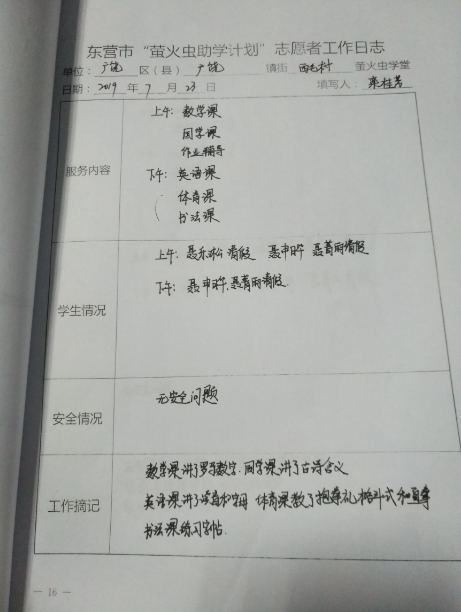 东营市“萤火虫助学计划”志愿者工作日志
单位：广饶 区（县） 广饶 镇街 西毛村 萤火虫学堂
日期：2019 年 7 月 23 日 填写人：
服务内容
上午：数学课
国学课
作业辅导
下午：英语课
体育课
书法课
学生情况
上午：聂乐 请假 聂申 聂菁丽请假
下午：聂申 、聂菁丽请假.
安全情况
无安全问题
工作摘记
数学课讲了罗马数字.国学课讲了古诗含义
英语课讲了 和字母 体育课教了抱拳礼,格斗式和直拳
书法课练习字帖.
— 16 —